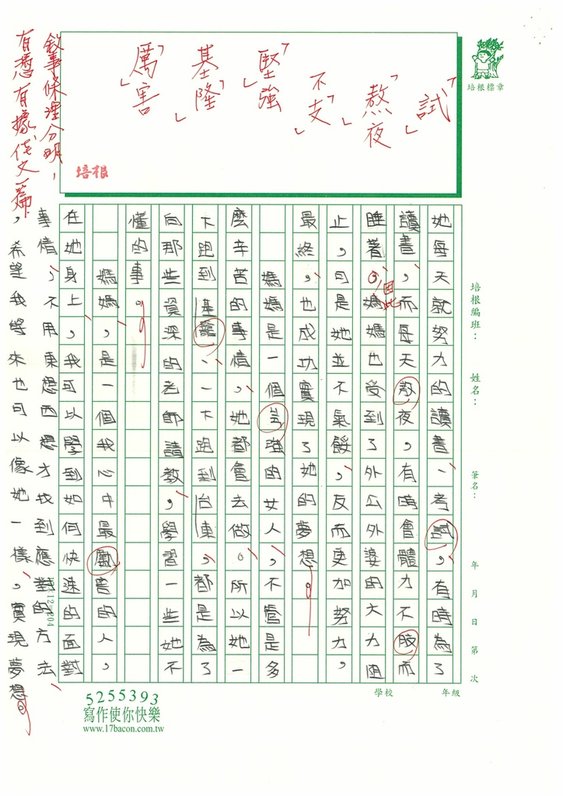 培根標章
「試」
「熬夜」
「不支」
「堅強」
「基隆」
「厲害」
培根
敘事條理分明，
有憑有據
培根編班：
姓名：
筆名：
年 月 日 第 次
她每天就努力的讀書、考試，有時為了
讀書，而每天熬夜，有時會體力不支而
睡著，因此媽媽也受到了外公外婆的大力阻
止，可是她並不氣餒，反而更加努力，
最終，也成功實現了她的夢想。
媽媽是一個堅強的女人，不管是多
麼辛苦的事情，她都會去做。所以她一
下跑到基隆、一下跑到台東，都是為了
向那些資深的老師請教，學習一些她不
懂的事。
媽媽，是一個我心中最厲害的人，
在她身上，我可以學到如何快速的面對
事情，不用東想西想才找到應對的方法
，希望我將來也可以像她一樣，實現夢想。
學校
年級
5255393
寫作使你快樂
www.17bacon.com.tw